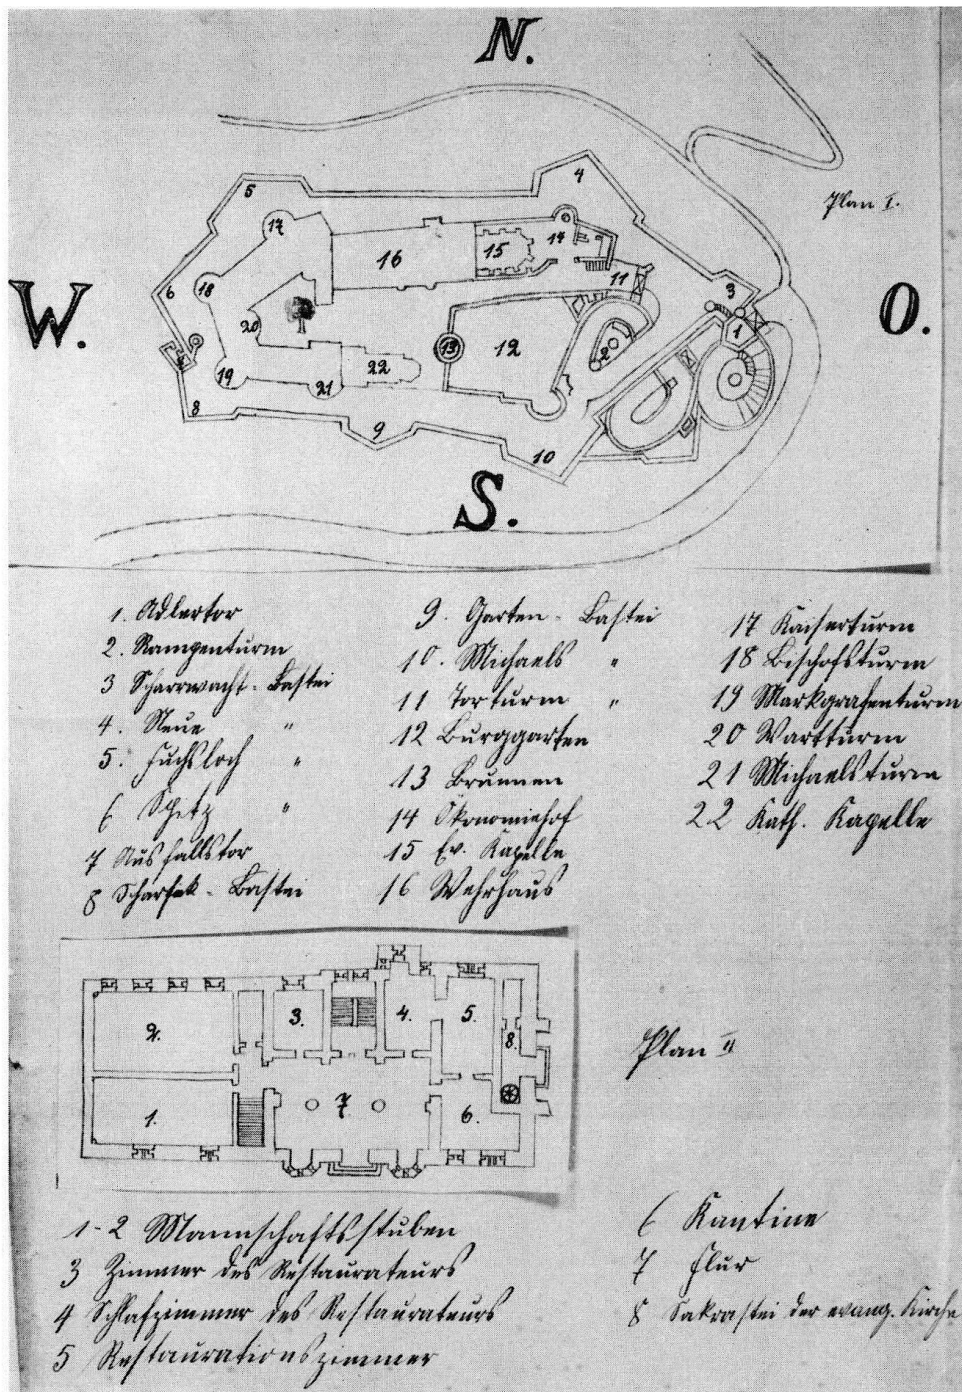 N.
Plan I.
W.
O.
S.
4
5
17
16
15
14
11
3
1
6
18
20
13
12
2
7
19
21
22
8
9
10
1. Adlertor
2. Rampenturm
3 Scharrwacht-Bastei
4. Neue "
5. Fuchsloch "
6 Spitz "
7 Ausfallstor
8 Scharfek-Bastei
9. Garten-Bastei
10. Michaels "
11 Torturm "
12 Burggarten
13 Brunnen
14 Ökonomiehof
15 Ev. Kapelle
16 Wehrhaus
17 Kaiserturm
18 Bischofsturm
19 Markgrafenturm
20 Wartturm
21 Michaelsturm
22 Kath. Kapelle
Plan II
2.
3.
4.
5.
8.
1.
7
6.
1-2 Mannschaftsstuben
3 Zimmer des Restaurateurs
4 Schlafzimmer des Restaurateurs
5 Restaurationszimmer
6 Kantine
7 Flur
8 Sakrastei der evang. Kirche